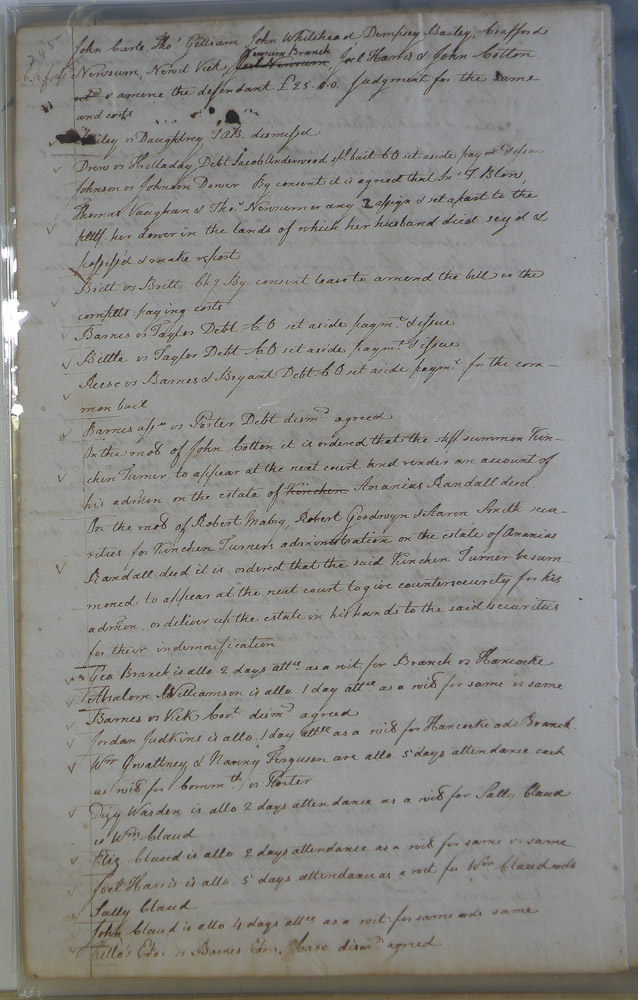 John Curle, Thos Gilliam John Whitehead Dempsey Bailey, Crafford
Newsum Branch
Newsum, Newit Vick, Joel Newsum Joel Harris & John Cotton
& amerce the defendant £25.0.0. Judgment for the same
and costs
vs Daughtrey TAB. dismissd
Drew vs Holladay Debt Jacob Underwood spl bail CO set aside paymt & issue
Johnson vs Johnson Dower By consent it is agreed that Blow,
Thomas Vaughan & Thos Newsum or any 2 assign & set apart to the
pltff her dower in the lands of which her husband died &
possess'd & make report
Britt vs Britt Chy By consent leave to amend the bill on the
complts paying costs
Barnes vs Taylor Debt C.O set aside paymt & issue
Bittle vs Taylor Debt C.O set aside paymt & issue
Reese vs Barnes & Bryant Debt C O set aside paymt for the com-
mon bail
Barnes assee vs Porter Debt dismd agreed
On the moo of John Cotton it is ordered that the shff summon Kin-
chen Turner to appear at the next court and render an account of
his admon. on the estate of Kinchen Ananias Randall decd
On the moo of Robert Mabry, Robert Goodwyn & Aaron Smith secu-
rities for Kinchen Turners administration on the estate of Ananias
Randall decd it is ordered that the said Kinchen Turner be sum-
moned to appear at the next court to give countersecurity for his
admon. or deliver up the estate in his hands to the said securities
for their indemnification
Geo Branch is allo 2 days attce as a wit for Branch vs Hancocke
Absalom Williamson is allo 1 day attce as a wit for same vs same
Barnes vs Vick Covt dismd agreed
Jordan Judkins is allo. 1 day attce as a wit for Hancocke ads Branch
Wm Gwaltney & Nanny Ferguson are allo 5 days attendance each
as wits for Commth vs Porter
Dizy Warden is allo 2 days attendance as a wit for Sally Claud
vs Wm Claud
Eliz Claud is allo 2 days attendance as a wit for same vs same
Joel Harris is allo 5 days attendance as a wit for Wm Claud ads
Sally Claud
John Claud is allo 4 days attce as a wit for same ads same
vs Barnes Exrs. Case dismd agreed